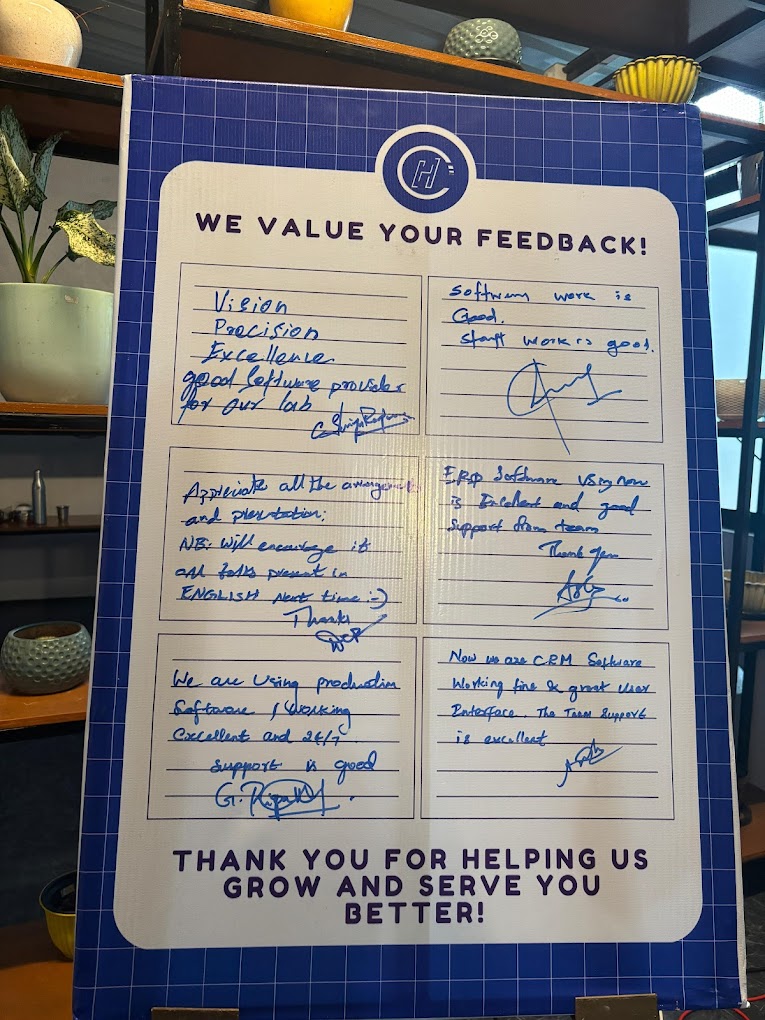 WE VALUE YOUR FEEDBACK!
Vision
Precision
Excellence
good Software provider
for our lab
Software work is
Good.
staff work is good.
Appreciate all the
and presentation:
NB: Will encourage if
all talks present in
ENGLISH next time :-)
Thanks
ERP Software using now
is Excellent and good
Support from team
Thank you
We are Using production
Software / Working
Excellent and 24/7
support is good
Now we are CRM Software
Working fine & great User
Interface. The Team Support
is excellent
THANK YOU FOR HELPING US
GROW AND SERVE YOU
BETTER!